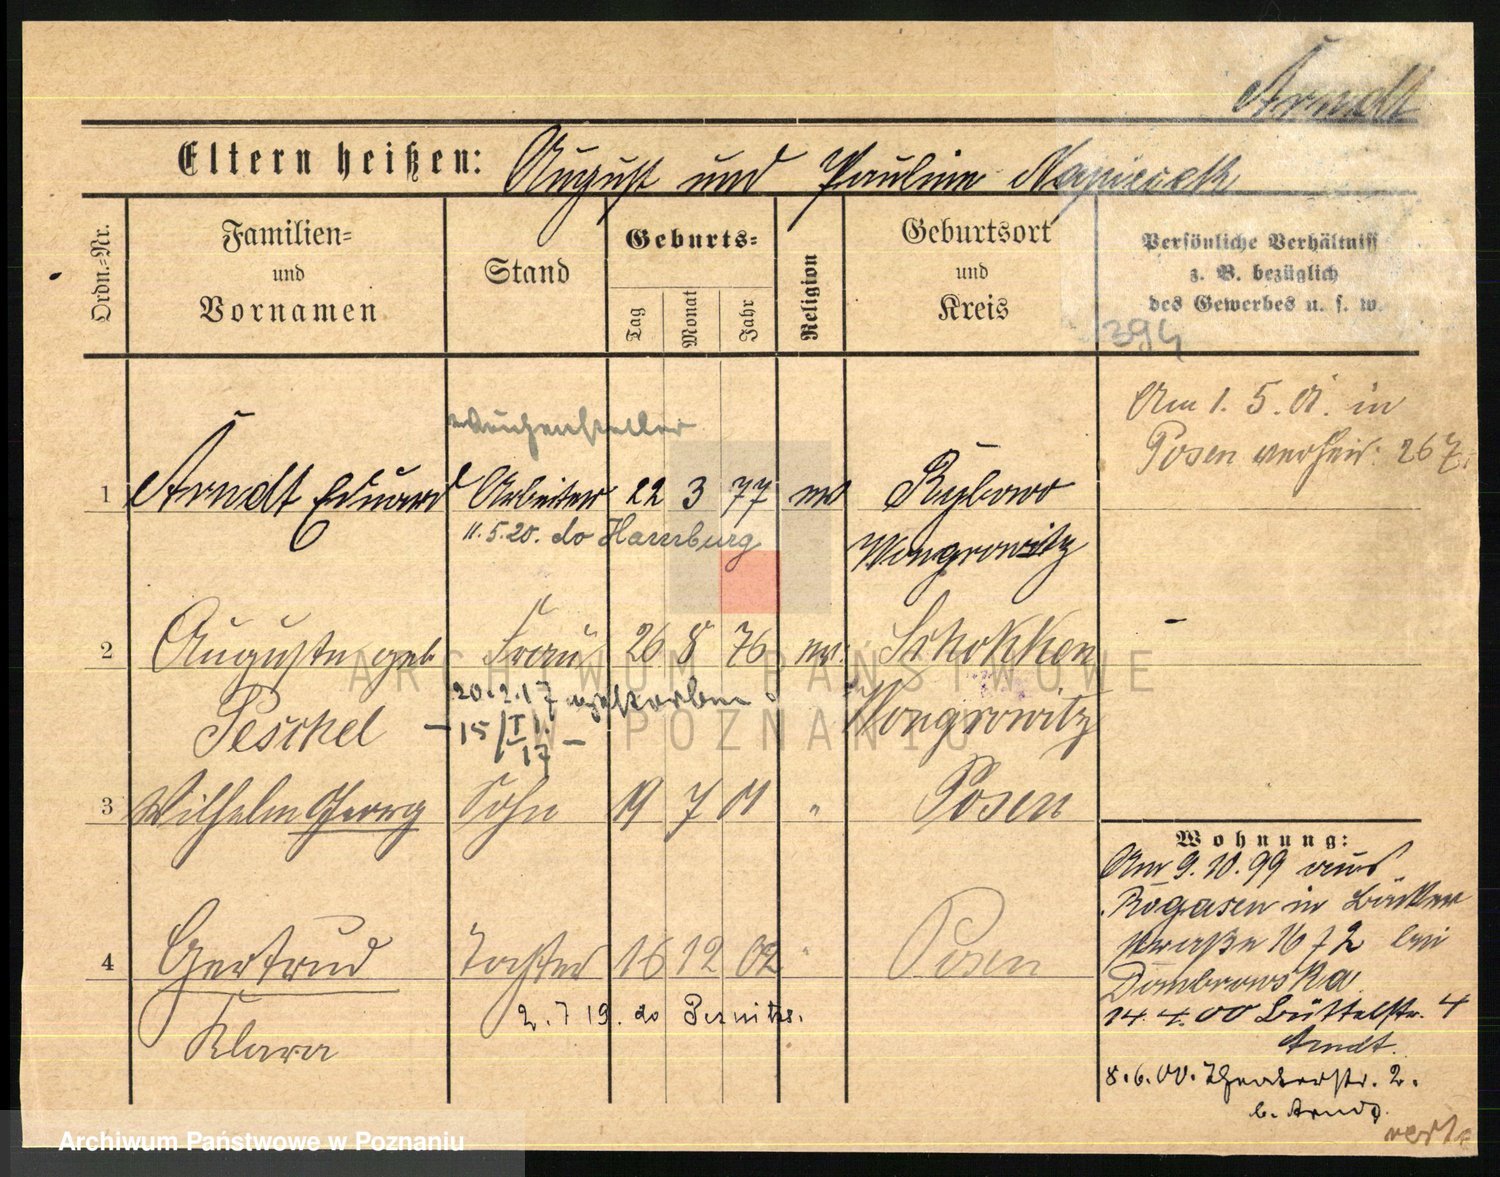 Arndt
Eltern heißen: August und Pauline
Ordn.-Nr.
Familien-
und
Vornamen
Stand
Geburts-
Tag
Monat
Jahr
Religion
Geburtsort
und
Kreis
Persönliche Verhältniss
z. B. bezüglich
des Gewerbes u. s. w.
394
Am 1. 5. 01. in
Posen verheir. 267.
Weichensteller
1 Arndt Eduard Arbeiter 22 3 77 ev Rybowo
11.5.20. do Hamburg Wongrowitz
2 Auguste geb Frau 26 8 76 ev. Schokken
Peschel 20.2.17 gestorben Wongrowitz
- 15/I 17 -
3 Wilhelm Georg Sohn 19 7 01 " Posen
4 Gertrud Tochter 16 12 02 " Posen
Klara 2.7 19. do
Wohnung:
Am 9.10.99 aus
Rogasen in Bäcker
straße 16 72 bei
Dombrowska
14.4.00 Büttelstr. 4
Arndt.
8.6.00. Theaterstr. 2.
b. Arndt.
verte
ARCHIWUM PAŃSTWOWE
W POZNANIU
Archiwum Państwowe w Poznaniu